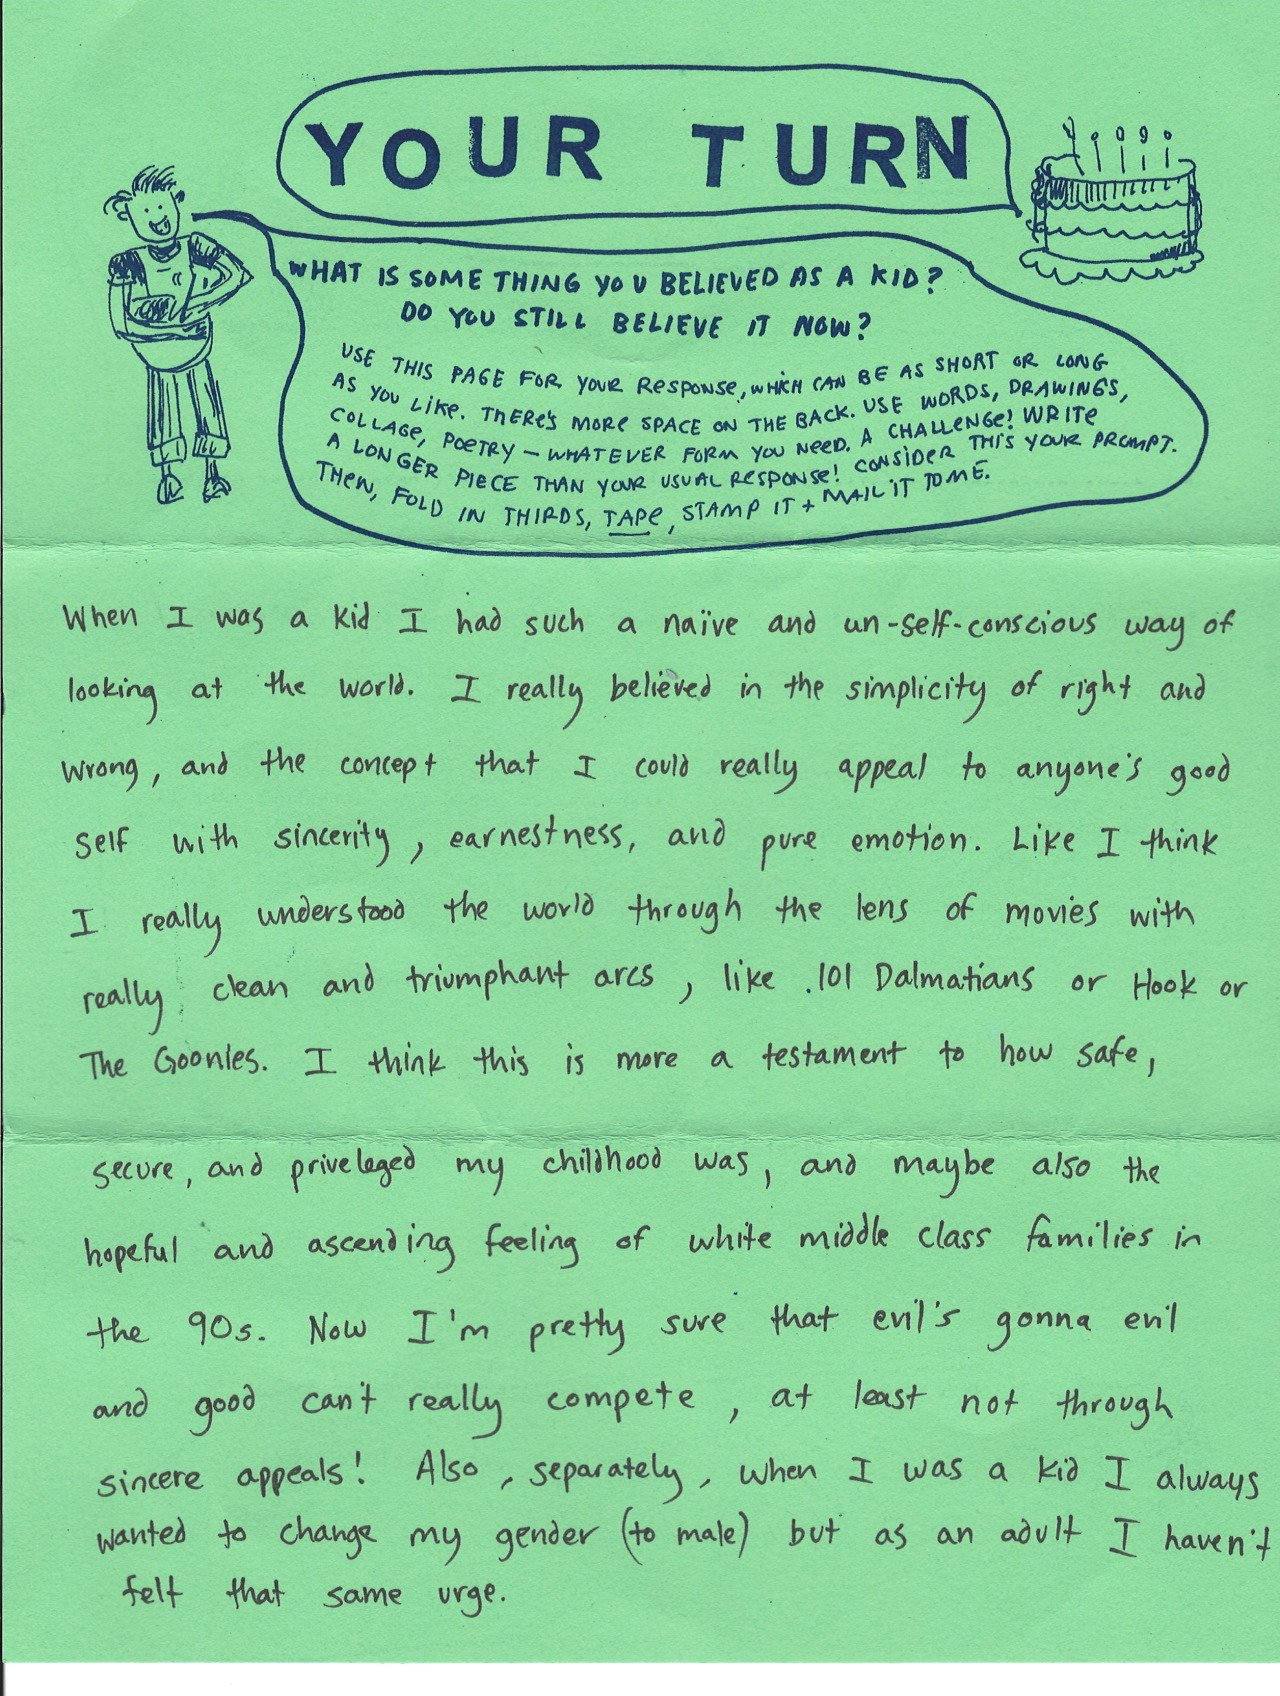 YOUR TURN
WHAT IS SOMETHING YOU BELIEVED AS A KID?
DO YOU STILL BELIEVE IT NOW?
USE THIS PAGE FOR YOUR RESPONSE, WHICH CAN BE AS SHORT OR LONG
AS YOU LIKE. THERE'S MORE SPACE ON THE BACK. USE WORDS, DRAWINGS,
COLLAGE, POETRY – WHATEVER FORM YOU NEED. A CHALLENGE! WRITE
A LONGER PIECE THAN YOUR USUAL RESPONSE! CONSIDER THIS YOUR PROMPT.
THEN, FOLD IN THIRDS, TAPE, STAMP IT + MAIL IT TO ME.
When I was a kid I had such a naïve and un-self-conscious way of
looking at the world. I really believed in the simplicity of right and
wrong, and the concept that I could really appeal to anyone's good
self with sincerity, earnestness, and pure emotion. Like I think
I really understood the world through the lens of movies with
really clean and triumphant arcs, like 101 Dalmatians or Hook or
The Goonies. I think this is more a testament to how safe,
secure, and priveleged my childhood was, and maybe also the
hopeful and ascending feeling of white middle class families in
the 90s. Now I'm pretty sure that evil's gonna evil
and good can't really compete, at least not through
sincere appeals! Also, separately, when I was a kid I always
wanted to change my gender (to male) but as an adult I haven't
felt that same urge.